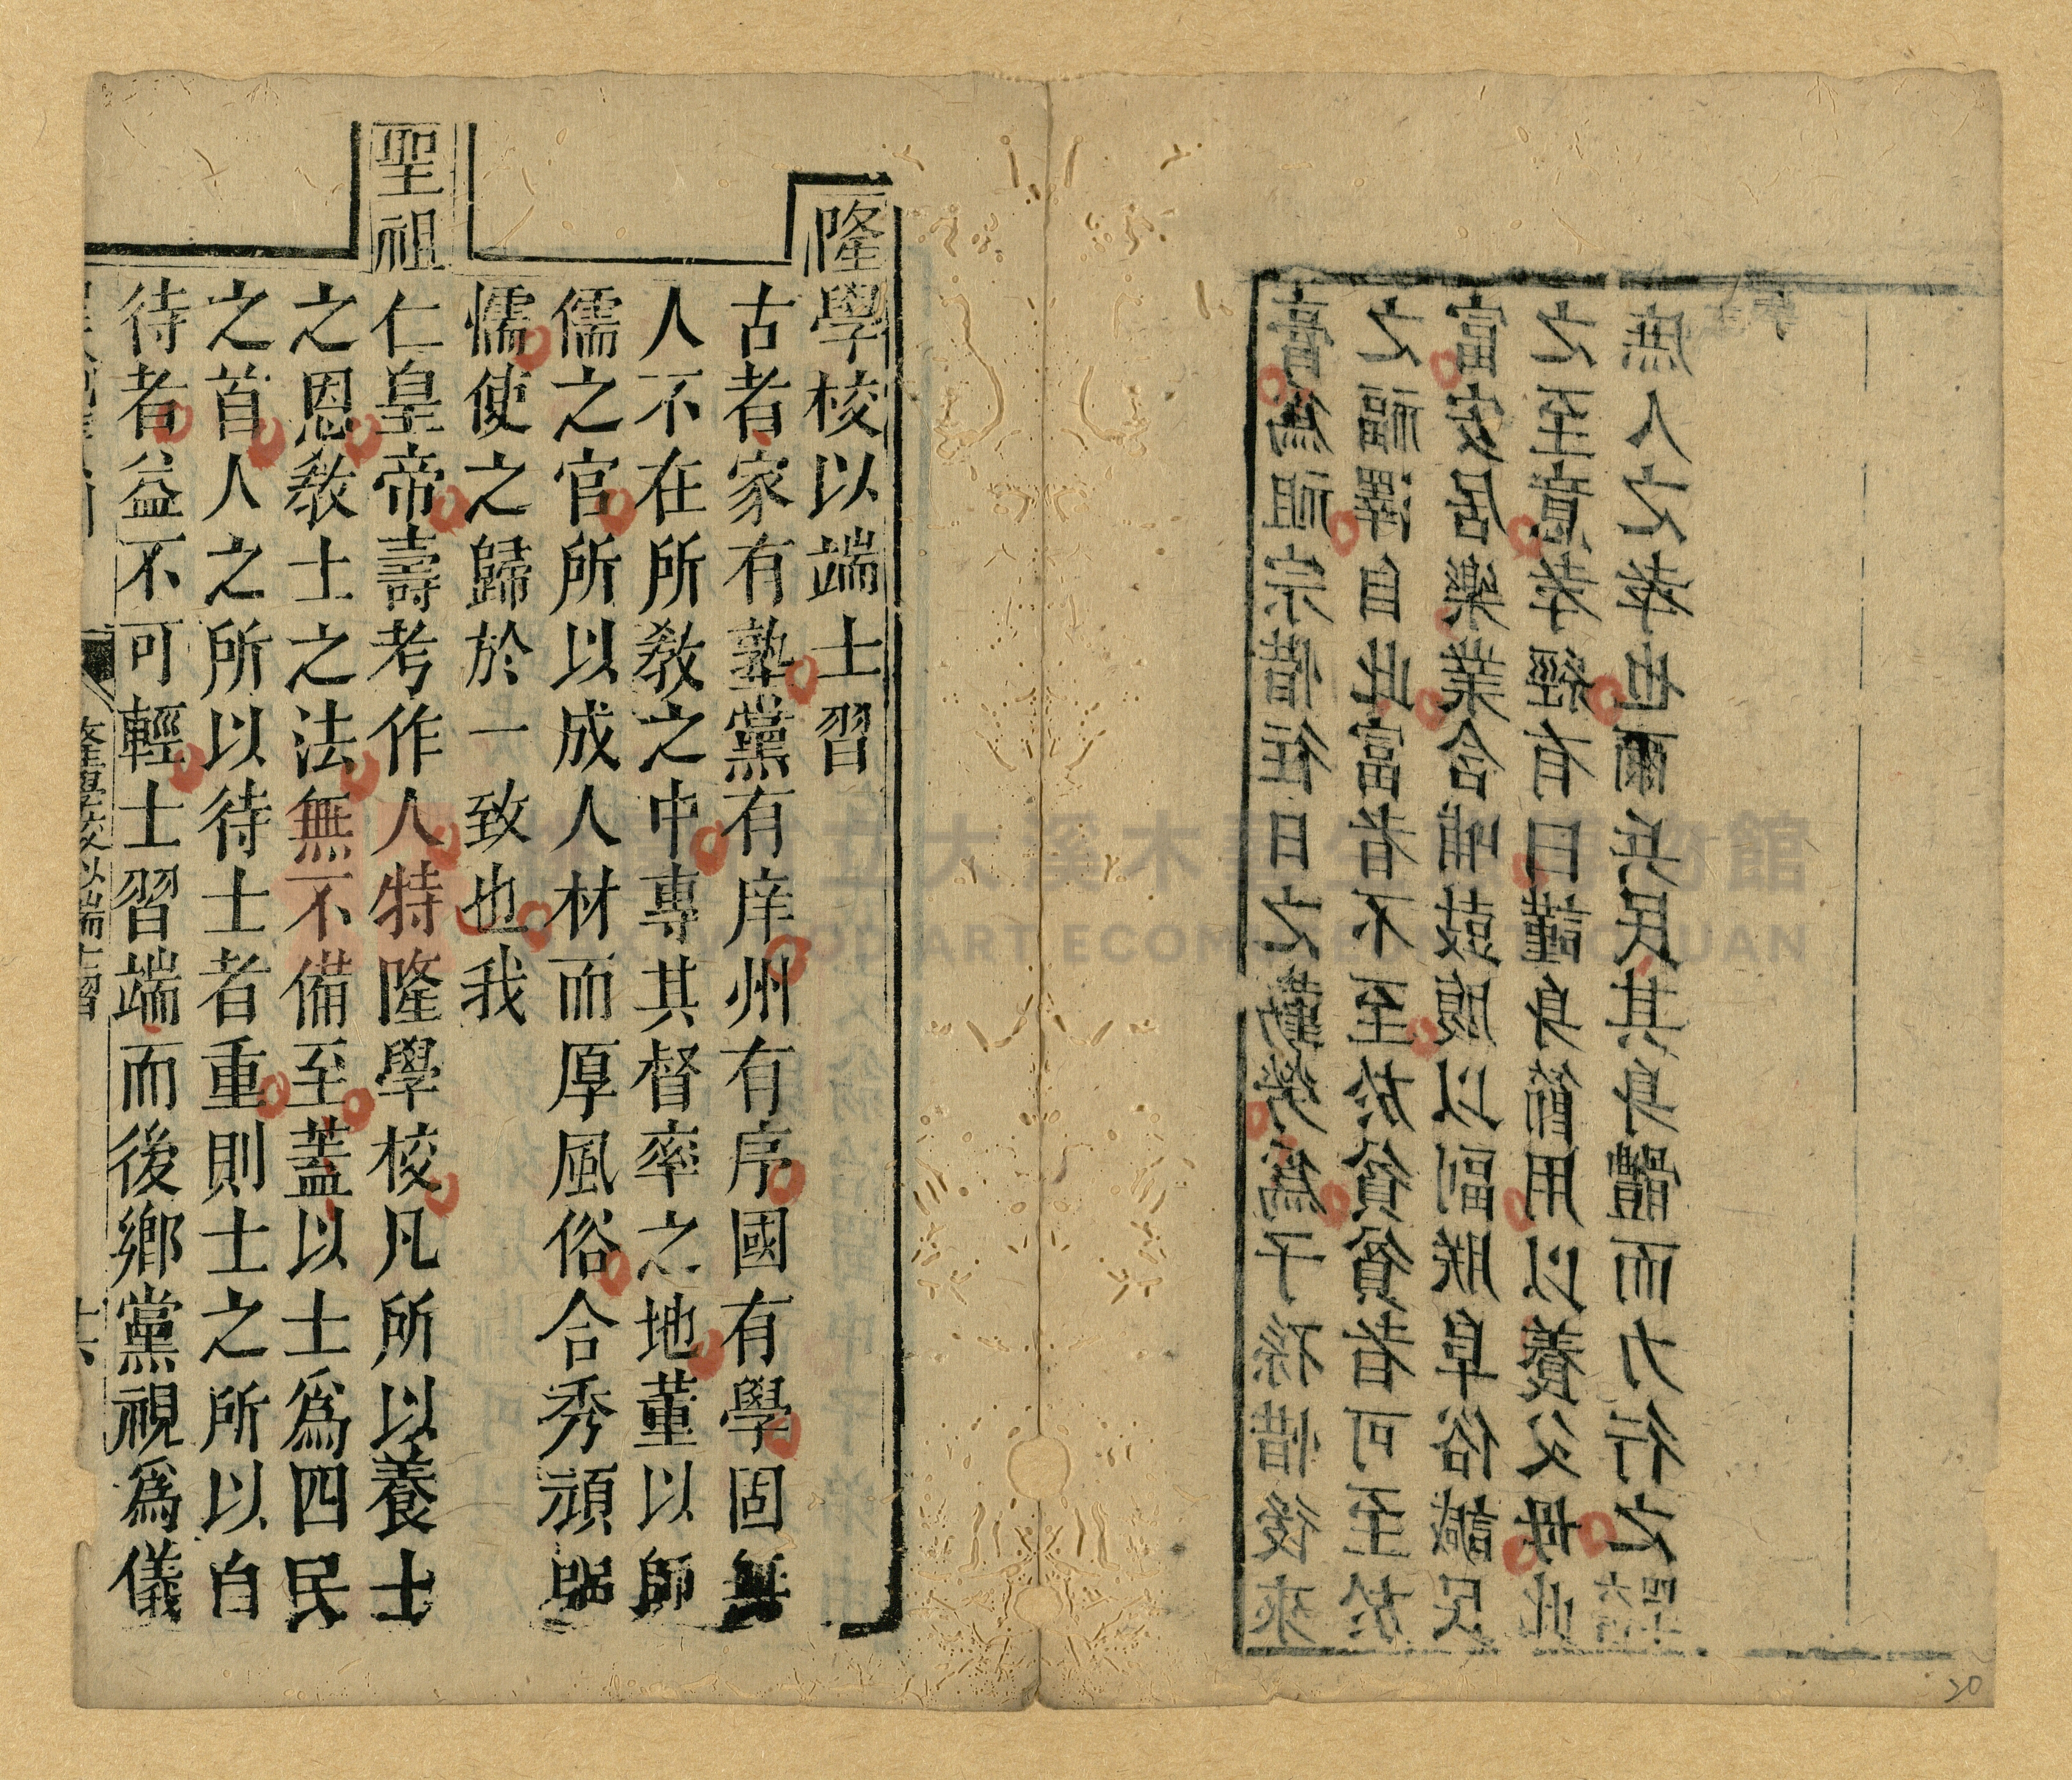 膏爲祖宗惜往日之勤勞爲子孫惜後來
之福澤自此富者不至於貧貧者可至於
富安居樂業含哺鼓腹以副朕阜俗諴民
之至意孝經有曰謹身節用以養父母此
庶人之孝也爾兵民其身體而力行之
隆學校以端士習
古者家有塾黨有庠州有序國有學固無
人不在所教之中專其督率之地董以師
儒之官所以成人材而厚風俗合秀頑強
懦使之歸於一致也我
聖祖仁皇帝壽考作人特隆學校凡所以養士
之恩教士之法無不備至蓋以士爲四民
之首人之所以待士者重則士之所以自
待者益不可輕士習端而後鄉黨視爲儀
隆學校以端士習 十六
20